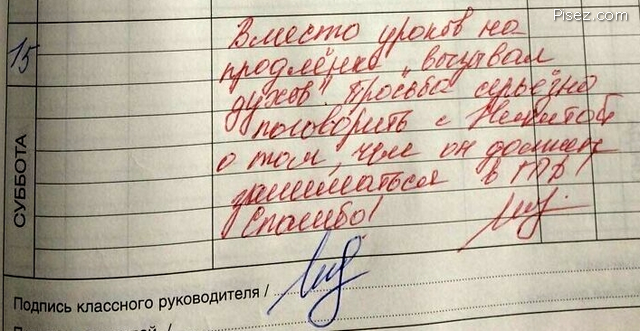 Pisez.com
15
СУББОТА
Вместо уроков на
продлёнке "вызывал
духов". Просьба серьёзно
поговорить с Никитой
о том, чем он должен
заниматься в ГПД!
Спасибо!
Подпись классного руководителя /